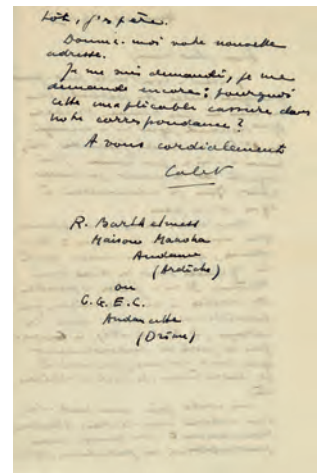 tôt, j'espère.
Donnez-moi votre nouvelle
adresse.
Je me suis demandé, je me
demande encore : pourquoi
cette inexplicable cassure dans
notre correspondance ?
A vous cordialement
Calet
R. Barthelmess
Maison Marsha
Andance
(Ardèche)
ou
C.G.E.C.
Andancette
(Drôme)